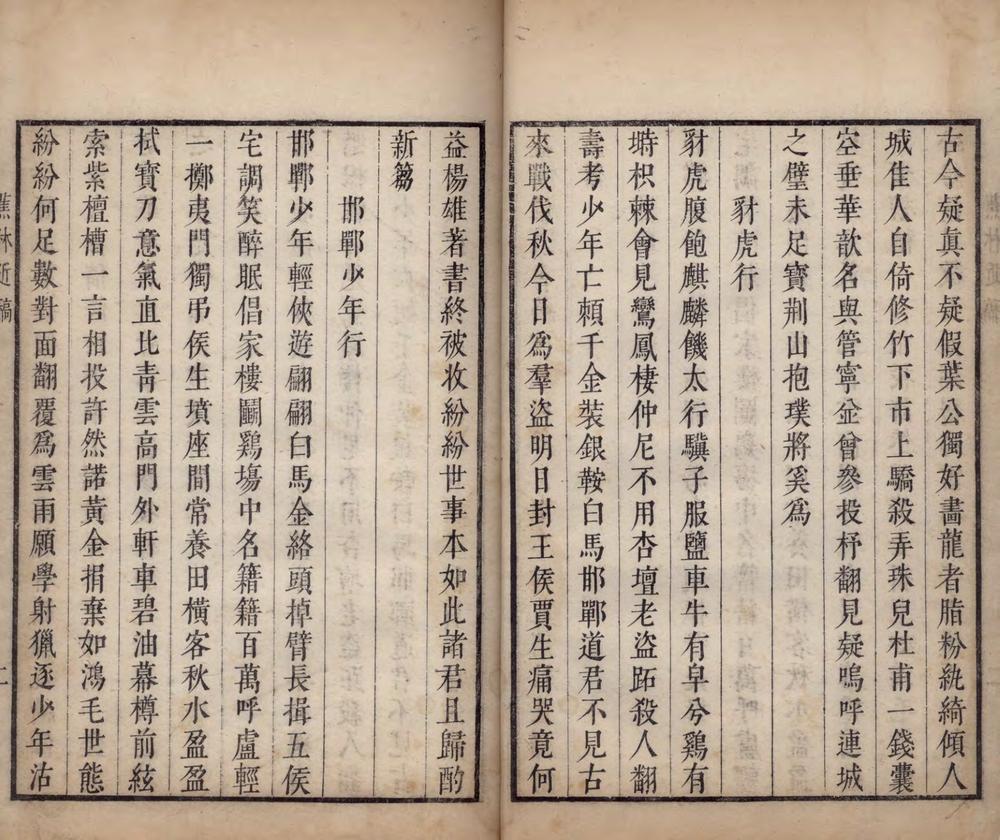 古今疑真不疑假葉公獨好畵龍者脂粉紈綺傾人
城隹人自倚修竹下市上驕殺弄珠兒杜甫一錢囊
空垂華歆名與管寧並曾參投杼翻見疑嗚呼連城
之璧未足寶荆山抱璞將奚爲
豺虎行
豺虎腹飽麒麟饑太行驥子服鹽車牛有皁兮鷄有
塒枳棘會見鸞鳳棲仲尼不用杏壇老盜跖殺人翻
壽考少年亡頼千金裝銀鞍白馬邯鄲道君不見古
來戰伐秋今日爲羣盜明日封王侯賈生痛哭竟何
益楊雄著書終被收紛紛世事本如此諸君且歸酌
新蒭
邯鄲少年行
邯鄲少年輕俠遊翩翩白馬金絡頭掉臂長揖五侯
宅調笑醉眠倡家樓鬭鷄塲中名籍籍百萬呼盧輕
一擲夷門獨弔侯生墳座間常養田横客秋水盈盈
拭寳刀意氣直比靑雲高門外軒車碧油幕樽前絃
索紫檀槽一言相投許然諾黃金捐棄如鴻毛世態
紛紛何足數對面翻覆爲雲雨願學射獵逐少年沽